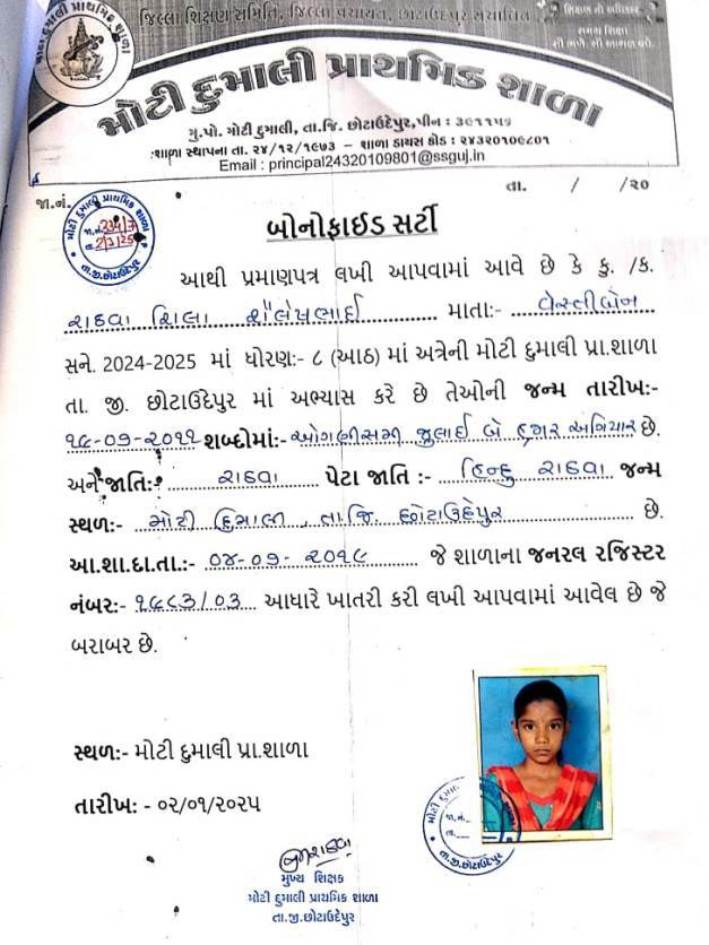 જિલ્લા શિક્ષણ સમિતિ, જિલ્લા પંચાયત, છોટાઉદેપુર સંચાલિત
મોટી દુમાલી પ્રાથમિક શાળા
મુ.પો. મોટી દુમાલી, તા.જિ. છોટાઉદેપુર,પીન : ૩૯૧૧૫૧
શાળા સ્થાપના તા. ૨૪/૧૨/૧૯૭૩ – શાળા ડાયસ કોડ : ૨૪૩૨૦૧૦૯૮૦૧
Email : principal24320109801@ssguj.in
જા.નં. તા. / /૨૦
બોનોફાઈડ સર્ટી
આથી પ્રમાણપત્ર લખી આપવામાં આવે છે કે કુ. /ક.
રાઠવા શિલા શૈલેષભાઈ માતા:-
સને. 2024-2025 માં ધોરણ:- ૮ (આઠ) માં અત્રેની મોટી દુમાલી પ્રા.શાળા
તા. જી. છોટાઉદેપુર માં અભ્યાસ કરે છે તેઓની જન્મ તારીખ:-
૧૯-૦૭-૨૦૧૧ શબ્દોમાં:- ઓગણીસમી જુલાઈ બે હજાર અગિયાર છે.
અને જાતિ:- રાઠવા પેટા જાતિ :- હિન્દુ રાઠવા જન્મ
સ્થળ:- મોટી દુમાલી, તા.જિ. છોટાઉદેપુર છે.
આ.શા.દા.તા.:- ૦૪-૦૭-૨૦૧૯ જે શાળાના જનરલ રજિસ્ટર
નંબર:- ૧૯૮૩/૦૩ આધારે ખાતરી કરી લખી આપવામાં આવેલ છે જે
બરાબર છે.
સ્થળ:- મોટી દુમાલી પ્રા.શાળા
તારીખ: - ૦૨/૦૧/૨૦૨૫
મુખ્ય શિક્ષક
મોટી દુમાલી પ્રાથમિક શાળા
તા.જી.છોટાઉદેપુર